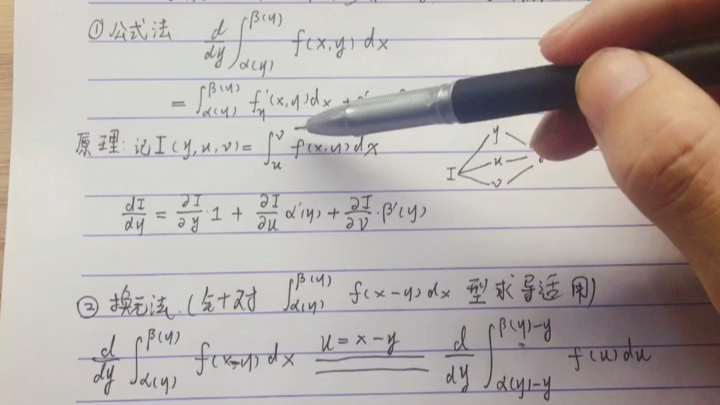 ① 公式法 d/dy ∫_{α(y)}^{β(y)} f(x,y) dx
= ∫_{α(y)}^{β(y)} f'_y(x,y)dx +
原理: 记 I(y,u,v) = ∫_u^v f(x,y)dx I y u v
dI/dy = ∂I/∂y·1 + ∂I/∂u α'(y) + ∂I/∂v·β'(y)
② 换元法.(针对 ∫_{α(y)}^{β(y)} f(x-y)dx 型求导适用)
d/dy ∫_{α(y)}^{β(y)} f(x-y)dx u=x-y d/dy ∫_{α(y)-y}^{β(y)-y} f(u)du